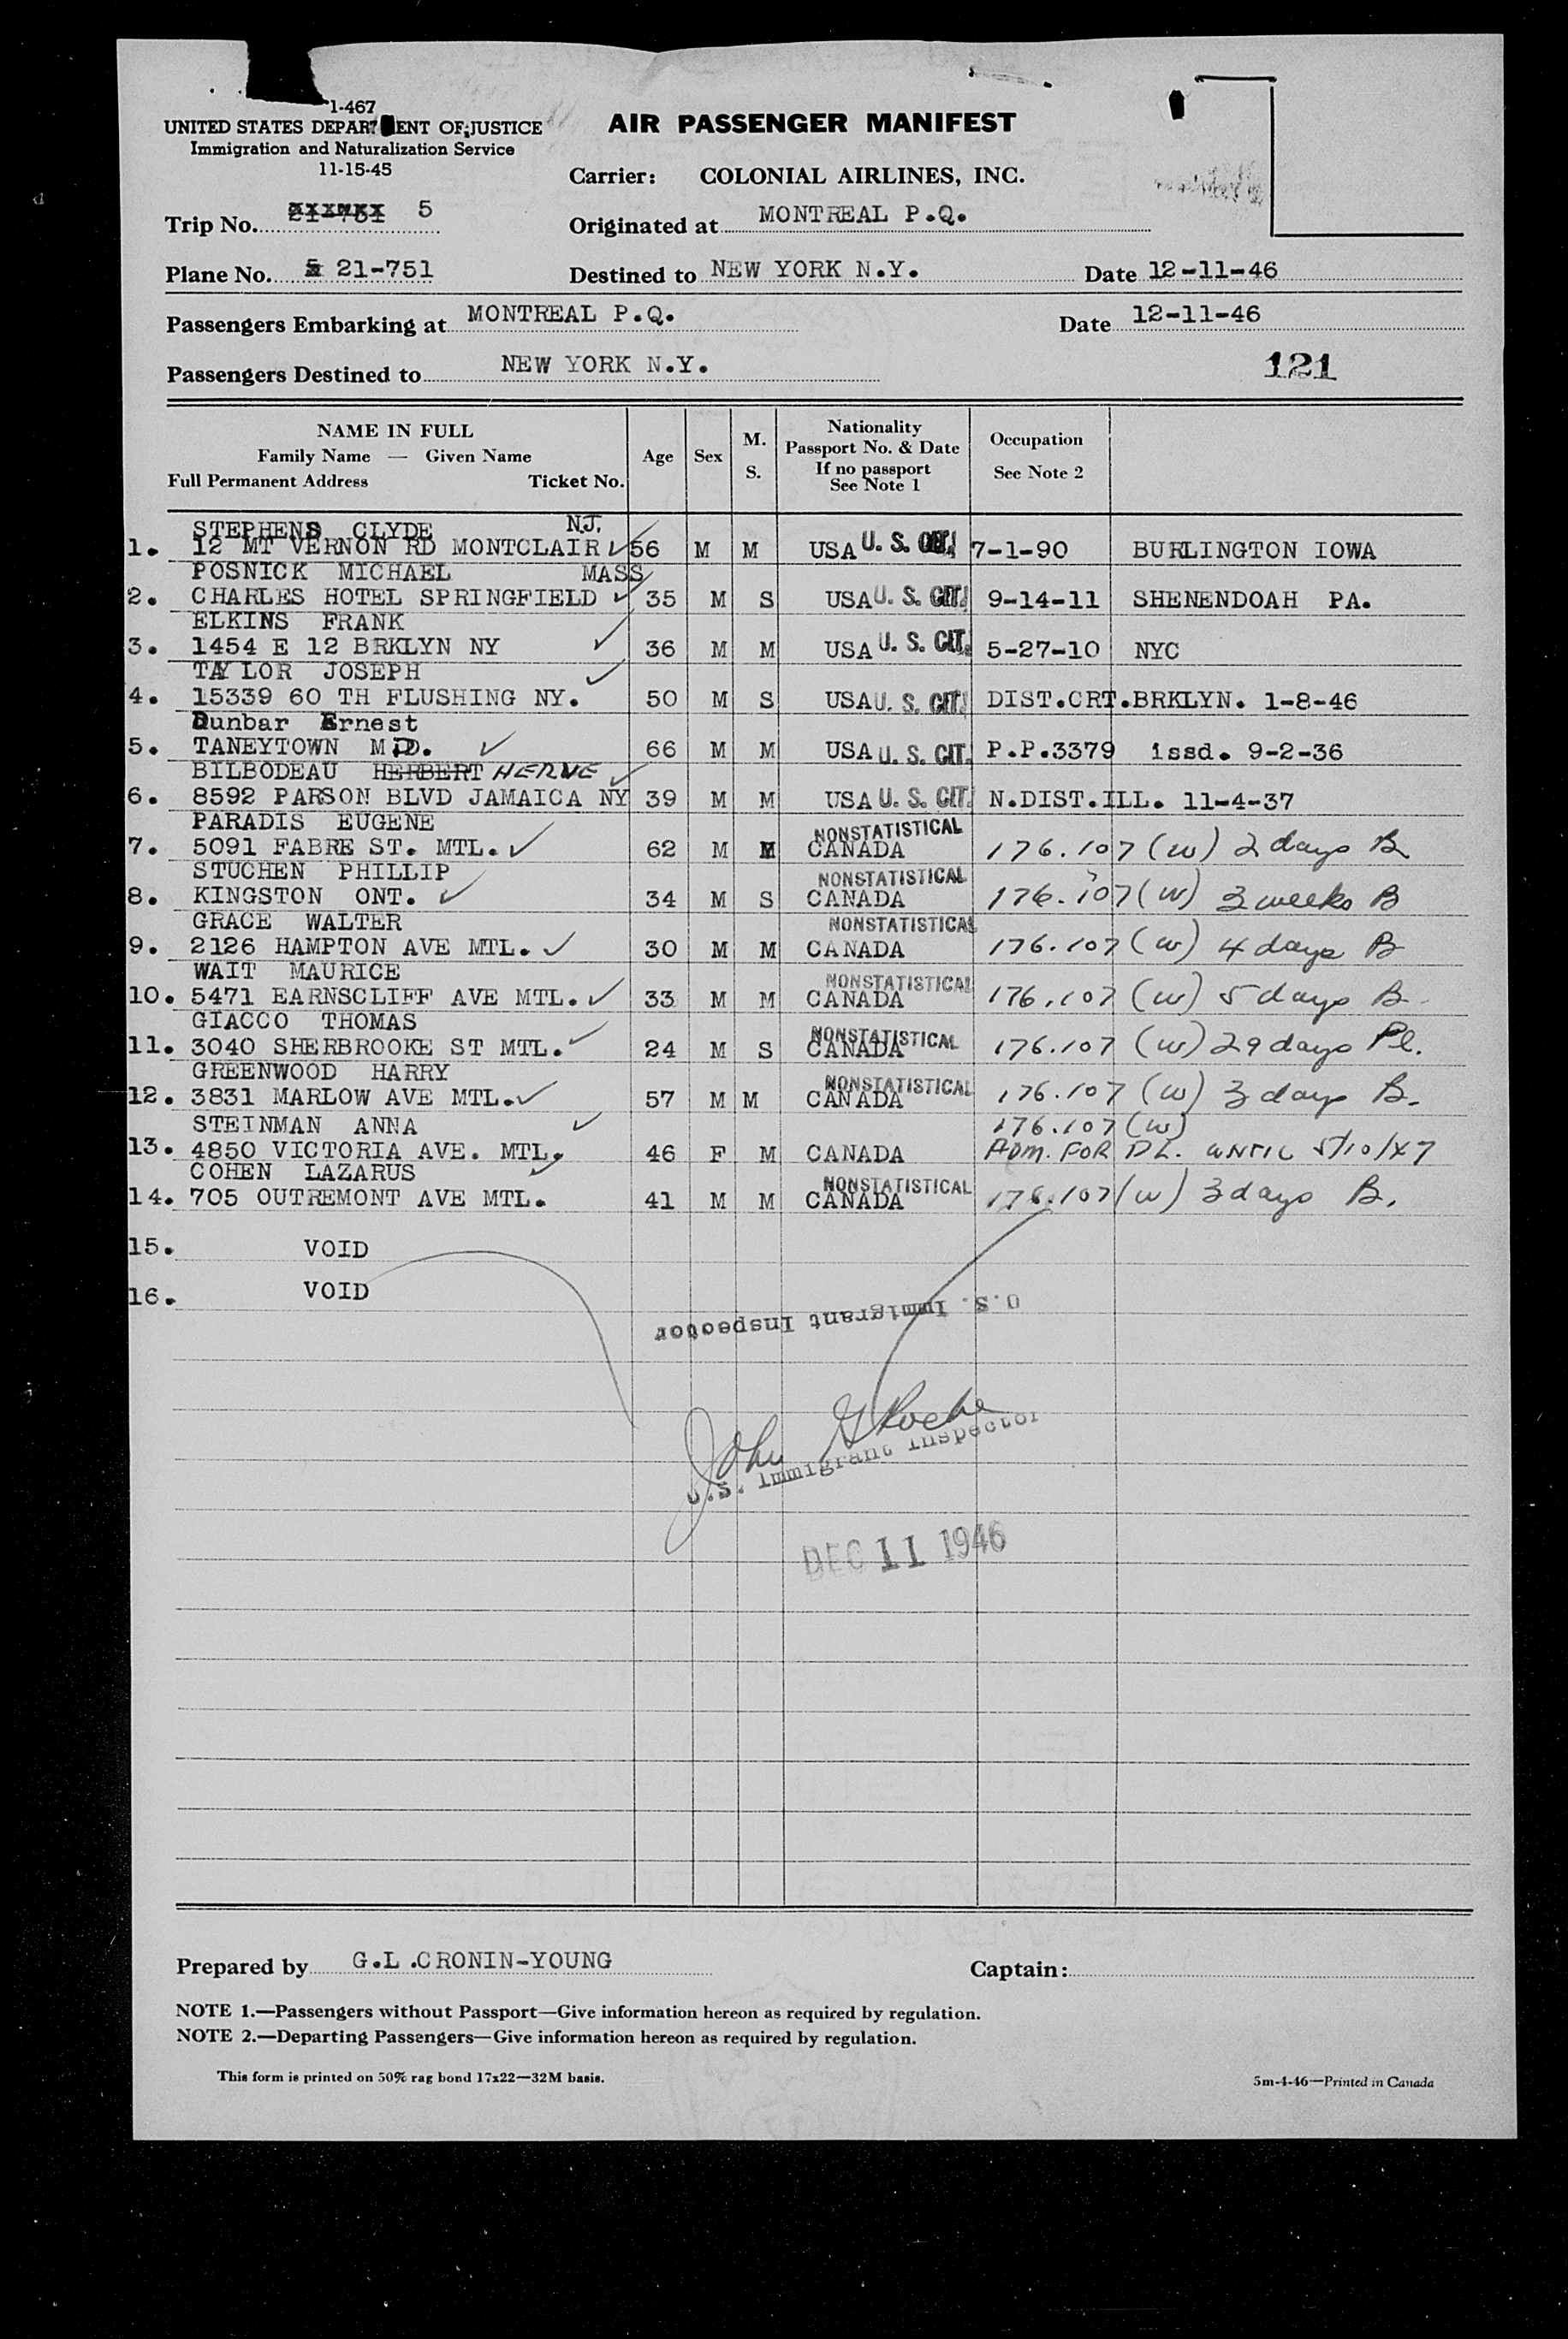 1-467
UNITED STATES DEPARTMENT OF JUSTICE
Immigration and Naturalization Service
11-15-45
AIR PASSENGER MANIFEST
Carrier: COLONIAL AIRLINES, INC.
Trip No. 21-751 5
Originated at MONTREAL P.Q.
Plane No. 5 21-751
Destined to NEW YORK N.Y. Date 12-11-46
Passengers Embarking at MONTREAL P.Q. Date 12-11-46
Passengers Destined to NEW YORK N.Y.
121
NAME IN FULL
Family Name — Given Name
Full Permanent Address Ticket No.
Age
Sex
M.
S.
Nationality
Passport No. & Date
If no passport
See Note 1
Occupation
See Note 2
STEPHENS CLYDE N.J.
1. 12 MT VERNON RD MONTCLAIR 56 M M USA U. S. CIT. 7-1-90 BURLINGTON IOWA
POSNICK MICHAEL MASS
2. CHARLES HOTEL SPRINGFIELD 35 M S USA U. S. CIT. 9-14-11 SHENENDOAH PA.
ELKINS FRANK
3. 1454 E 12 BRKLYN NY 36 M M USA U. S. CIT. 5-27-10 NYC
TAYLOR JOSEPH
4. 15339 60 TH FLUSHING NY. 50 M S USA U. S. CIT. DIST.CRT.BRKLYN. 1-8-46
Dunbar Ernest
5. TANEYTOWN MD. 66 M M USA U. S. CIT. P.P.3379 issd. 9-2-36
BILBODEAU HERBERT HERVE
6. 8592 PARSON BLVD JAMAICA NY 39 M M USA U. S. CIT. N.DIST.ILL. 11-4-37
PARADIS EUGENE NONSTATISTICAL
7. 5091 FABRE ST. MTL. 62 M M CANADA 176.107 (w) 2 days B
STUCHEN PHILLIP NONSTATISTICAL
8. KINGSTON ONT. 34 M S CANADA 176.107 (w) 3 weeks B
GRACE WALTER NONSTATISTICAL
9. 2126 HAMPTON AVE MTL. 30 M M CANADA 176.107 (w) 4 days B
WAIT MAURICE NONSTATISTICAL
10. 5471 EARNSCLIFF AVE MTL. 33 M M CANADA 176.107 (w) 5 days B
GIACCO THOMAS NONSTATISTICAL
11. 3040 SHERBROOKE ST MTL. 24 M S CANADA 176.107 (w) 29 days Pl.
GREENWOOD HARRY NONSTATISTICAL
12. 3831 MARLOW AVE MTL. 57 M M CANADA 176.107 (w) 3 days B.
STEINMAN ANNA 176.107 (w)
13. 4850 VICTORIA AVE. MTL. 46 F M CANADA ADM. FOR PL. UNTIL 5/10/47
COHEN LAZARUS NONSTATISTICAL
14. 705 OUTREMONT AVE MTL. 41 M M CANADA 176.107 (w) 3 days B.
15. VOID
16. VOID
U.S. Immigrant Inspector
John G Roche
U.S. Immigrant Inspector
DEC 11 1946
Prepared by G.L.CRONIN-YOUNG Captain:
NOTE 1.—Passengers without Passport—Give information hereon as required by regulation.
NOTE 2.—Departing Passengers—Give information hereon as required by regulation.
This form is printed on 50% rag bond 17x22—32M basis.
5m-4-46—Printed in Canada